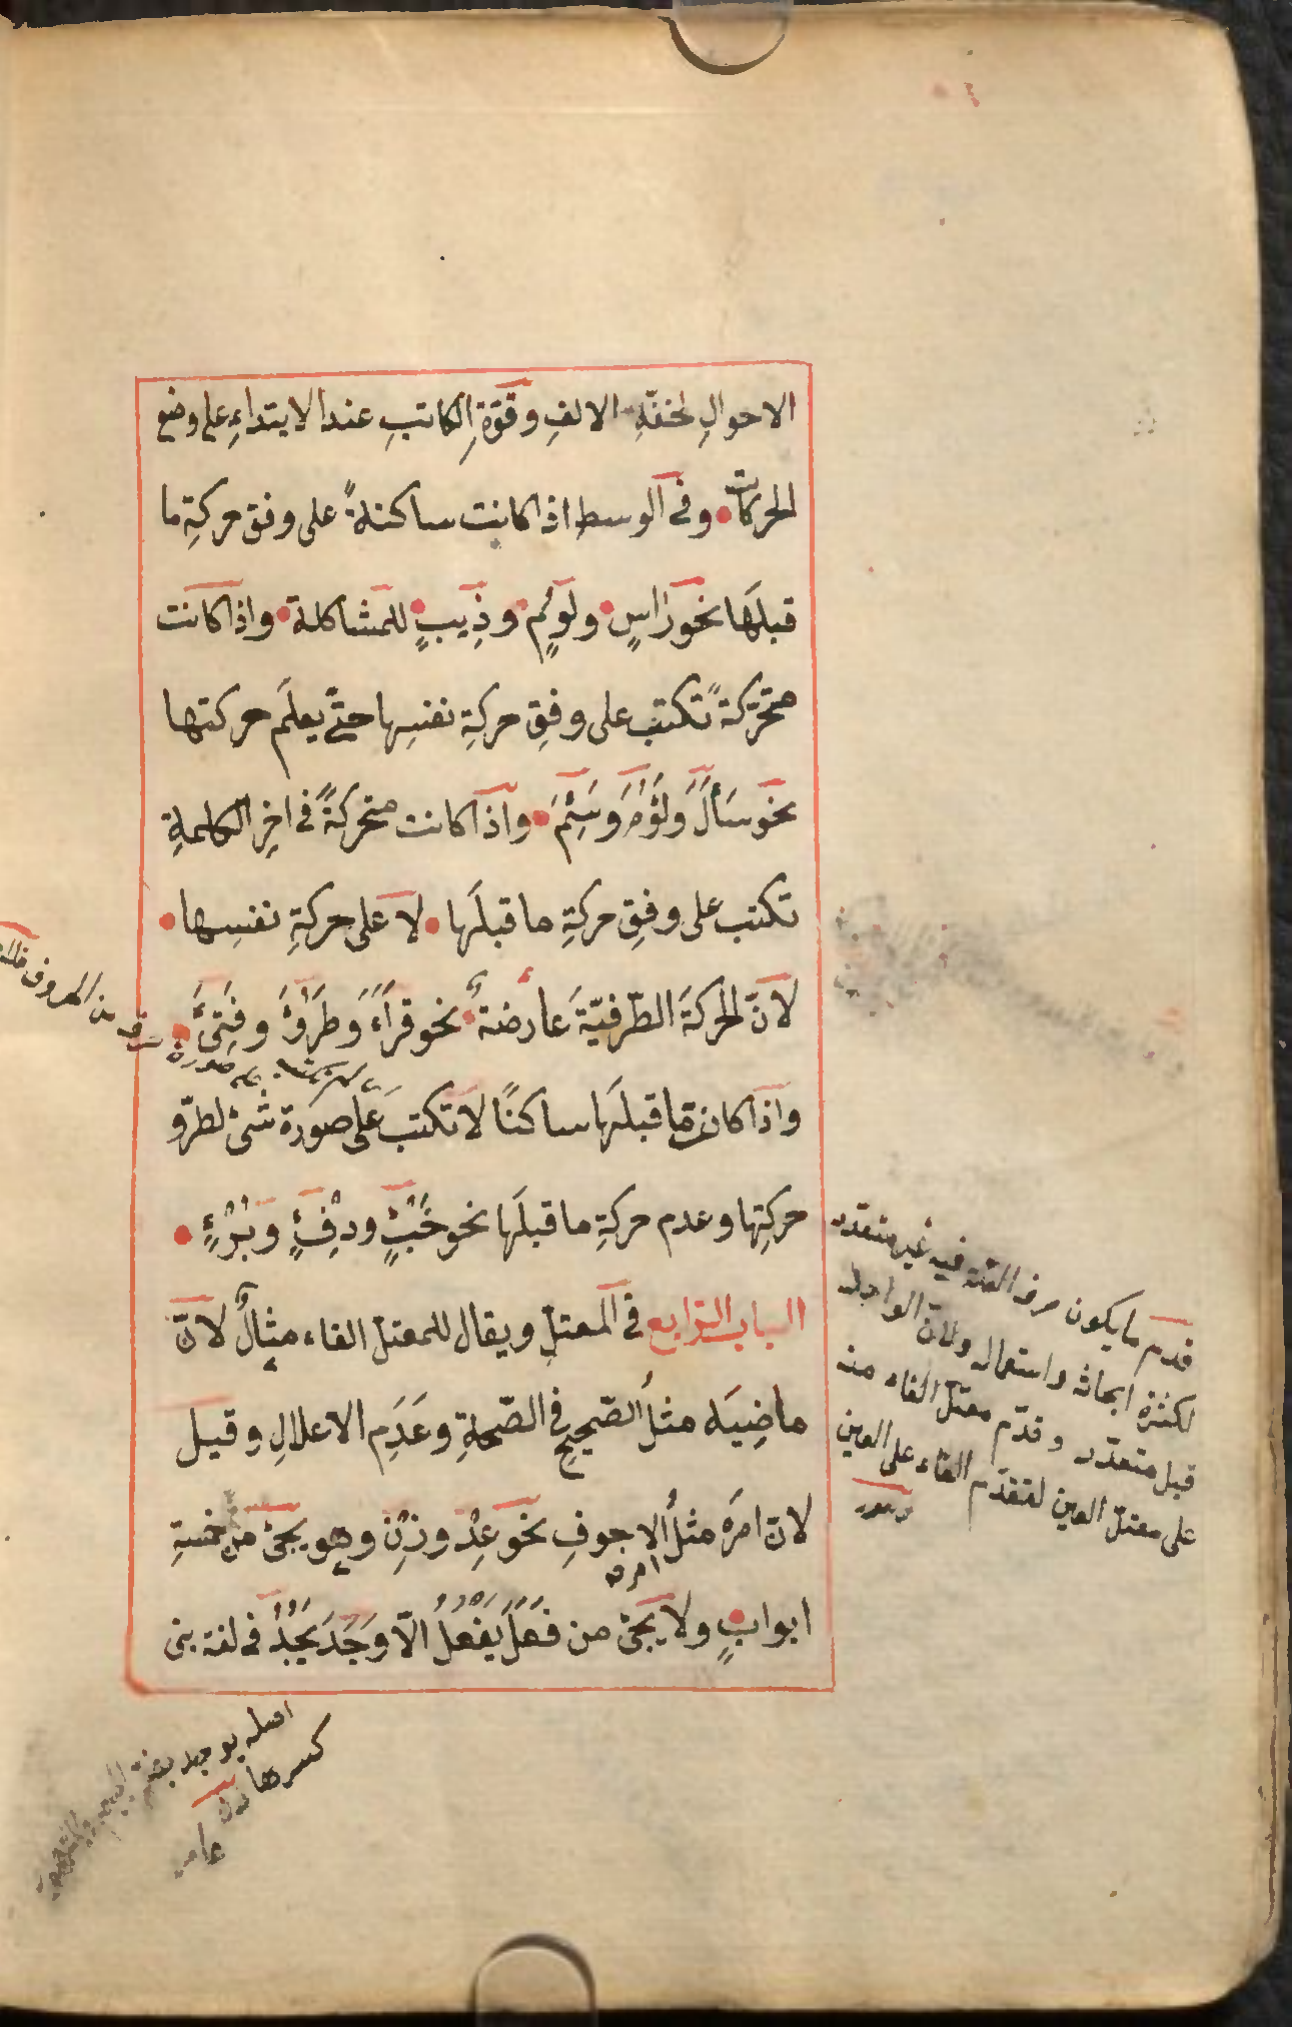 الاحوالِ لخفّةِ الالفِ وقوّةِ الكاتبِ عند الابتداءِ على وضع
الحركات وفى الوسط اذا كانت ساكنةً على وفق حركةِ ما
قبلَها نحو رَاسٍ ولُوْمٍ وذِيبٍ للمشاكلة واذا كانت
متحرّكةً تكتب على وفقِ حركةِ نفسِها حتّى يعلَم حركتها
نحو سَأَلَ ولَؤُمَ وسَئِمَ واذا كانت متحركةً فى اخِرِ الكلمةِ
تكتب على وفقِ حركةِ ما قبلَها لا على حركةِ نفسِها
لانّ الحركةَ الطّرفيّةَ عارضةٌ نحو قرَأَ وَطَرُؤَ وفَتِئَ
واذا كان ما قبلَها ساكنًا لا تكتبَ على صورة شئ لطرّو
حركتِها وعدم حركةِ ما قبلَها نحو خَبْءٍ ودِفْءٍ وبُرْءٍ
الباب الرّابع فى المعتلِ ويقال للمعتل الفاء مثالٌ لانّ
ماضِيَه مثلُ الصّحيحِ فى الصّحةِ وعَدَمِ الاعلالِ وقيل
لانّ امرَه مثلُ امر الاجوفِ نحو عِدْ وزِنْ وهو يجئ من خمسةِ
ابوابٍ ولا يجئ من فعَلَ يَفْعُلُ الّا وَجَدَ يَجُدُ فى لغة بنى
قدم ما يكون حرف العلّة فيه غير متعدد
لكثرة ابحاثه واستعماله ولانّ الواحد
قبل متعدّد وقدّم معتلّ الفاء منه
على معتلّ العين لتقدّم الفاء على العين
اصله يوجد بضم الجيم
كسرها
عامر